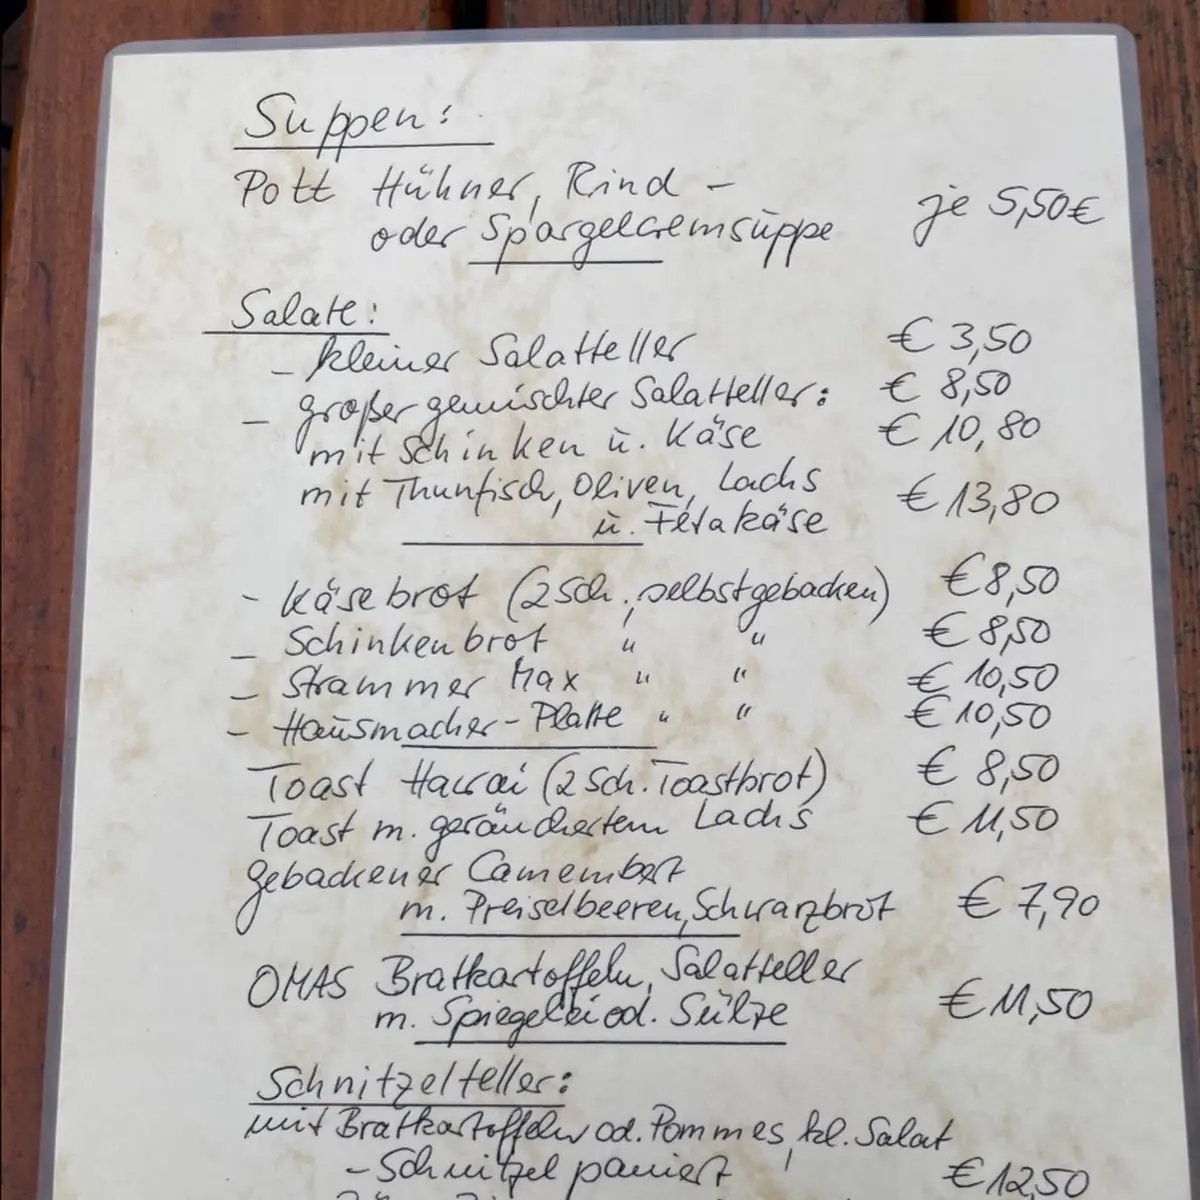 Suppen:
Pott Hühner, Rind -
oder Spargelcremsuppe je 5,50€
Salate:
- kleiner Salatteller € 3,50
- großer gemischter Salatteller: € 8,50
mit Schinken u. Käse € 10,80
mit Thunfisch, Oliven, Lachs
u. Fetakäse € 13,80
- Käsebrot (2 Sch., selbstgebacken) € 8,50
- Schinkenbrot " " € 8,50
- Strammer Max " " € 10,50
- Hausmacher-Platte " " € 10,50
Toast Hawai (2 Sch. Toastbrot) € 8,50
Toast m. geräuchertem Lachs € 11,50
gebackener Camembert
m. Preiselbeeren, Schwarzbrot € 7,90
OMAS Bratkartoffeln, Salatteller
m. Spiegelei od. Sülze € 11,50
Schnitzelteller:
mit Bratkartoffeln od. Pommes, kl. Salat
- Schnitzel paniert € 12,50